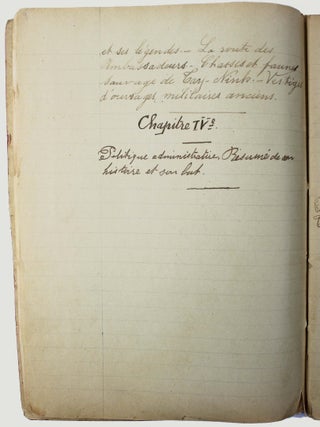 et ses légendes. — La route des
Ambassadeurs. — Chasses et faunes
sauvage de Tay-Ninh. — Vestiges
d'ouvrages militaires anciens.
Chapitre IVe.
Politique administrative. Résumé de son
histoire et son but.